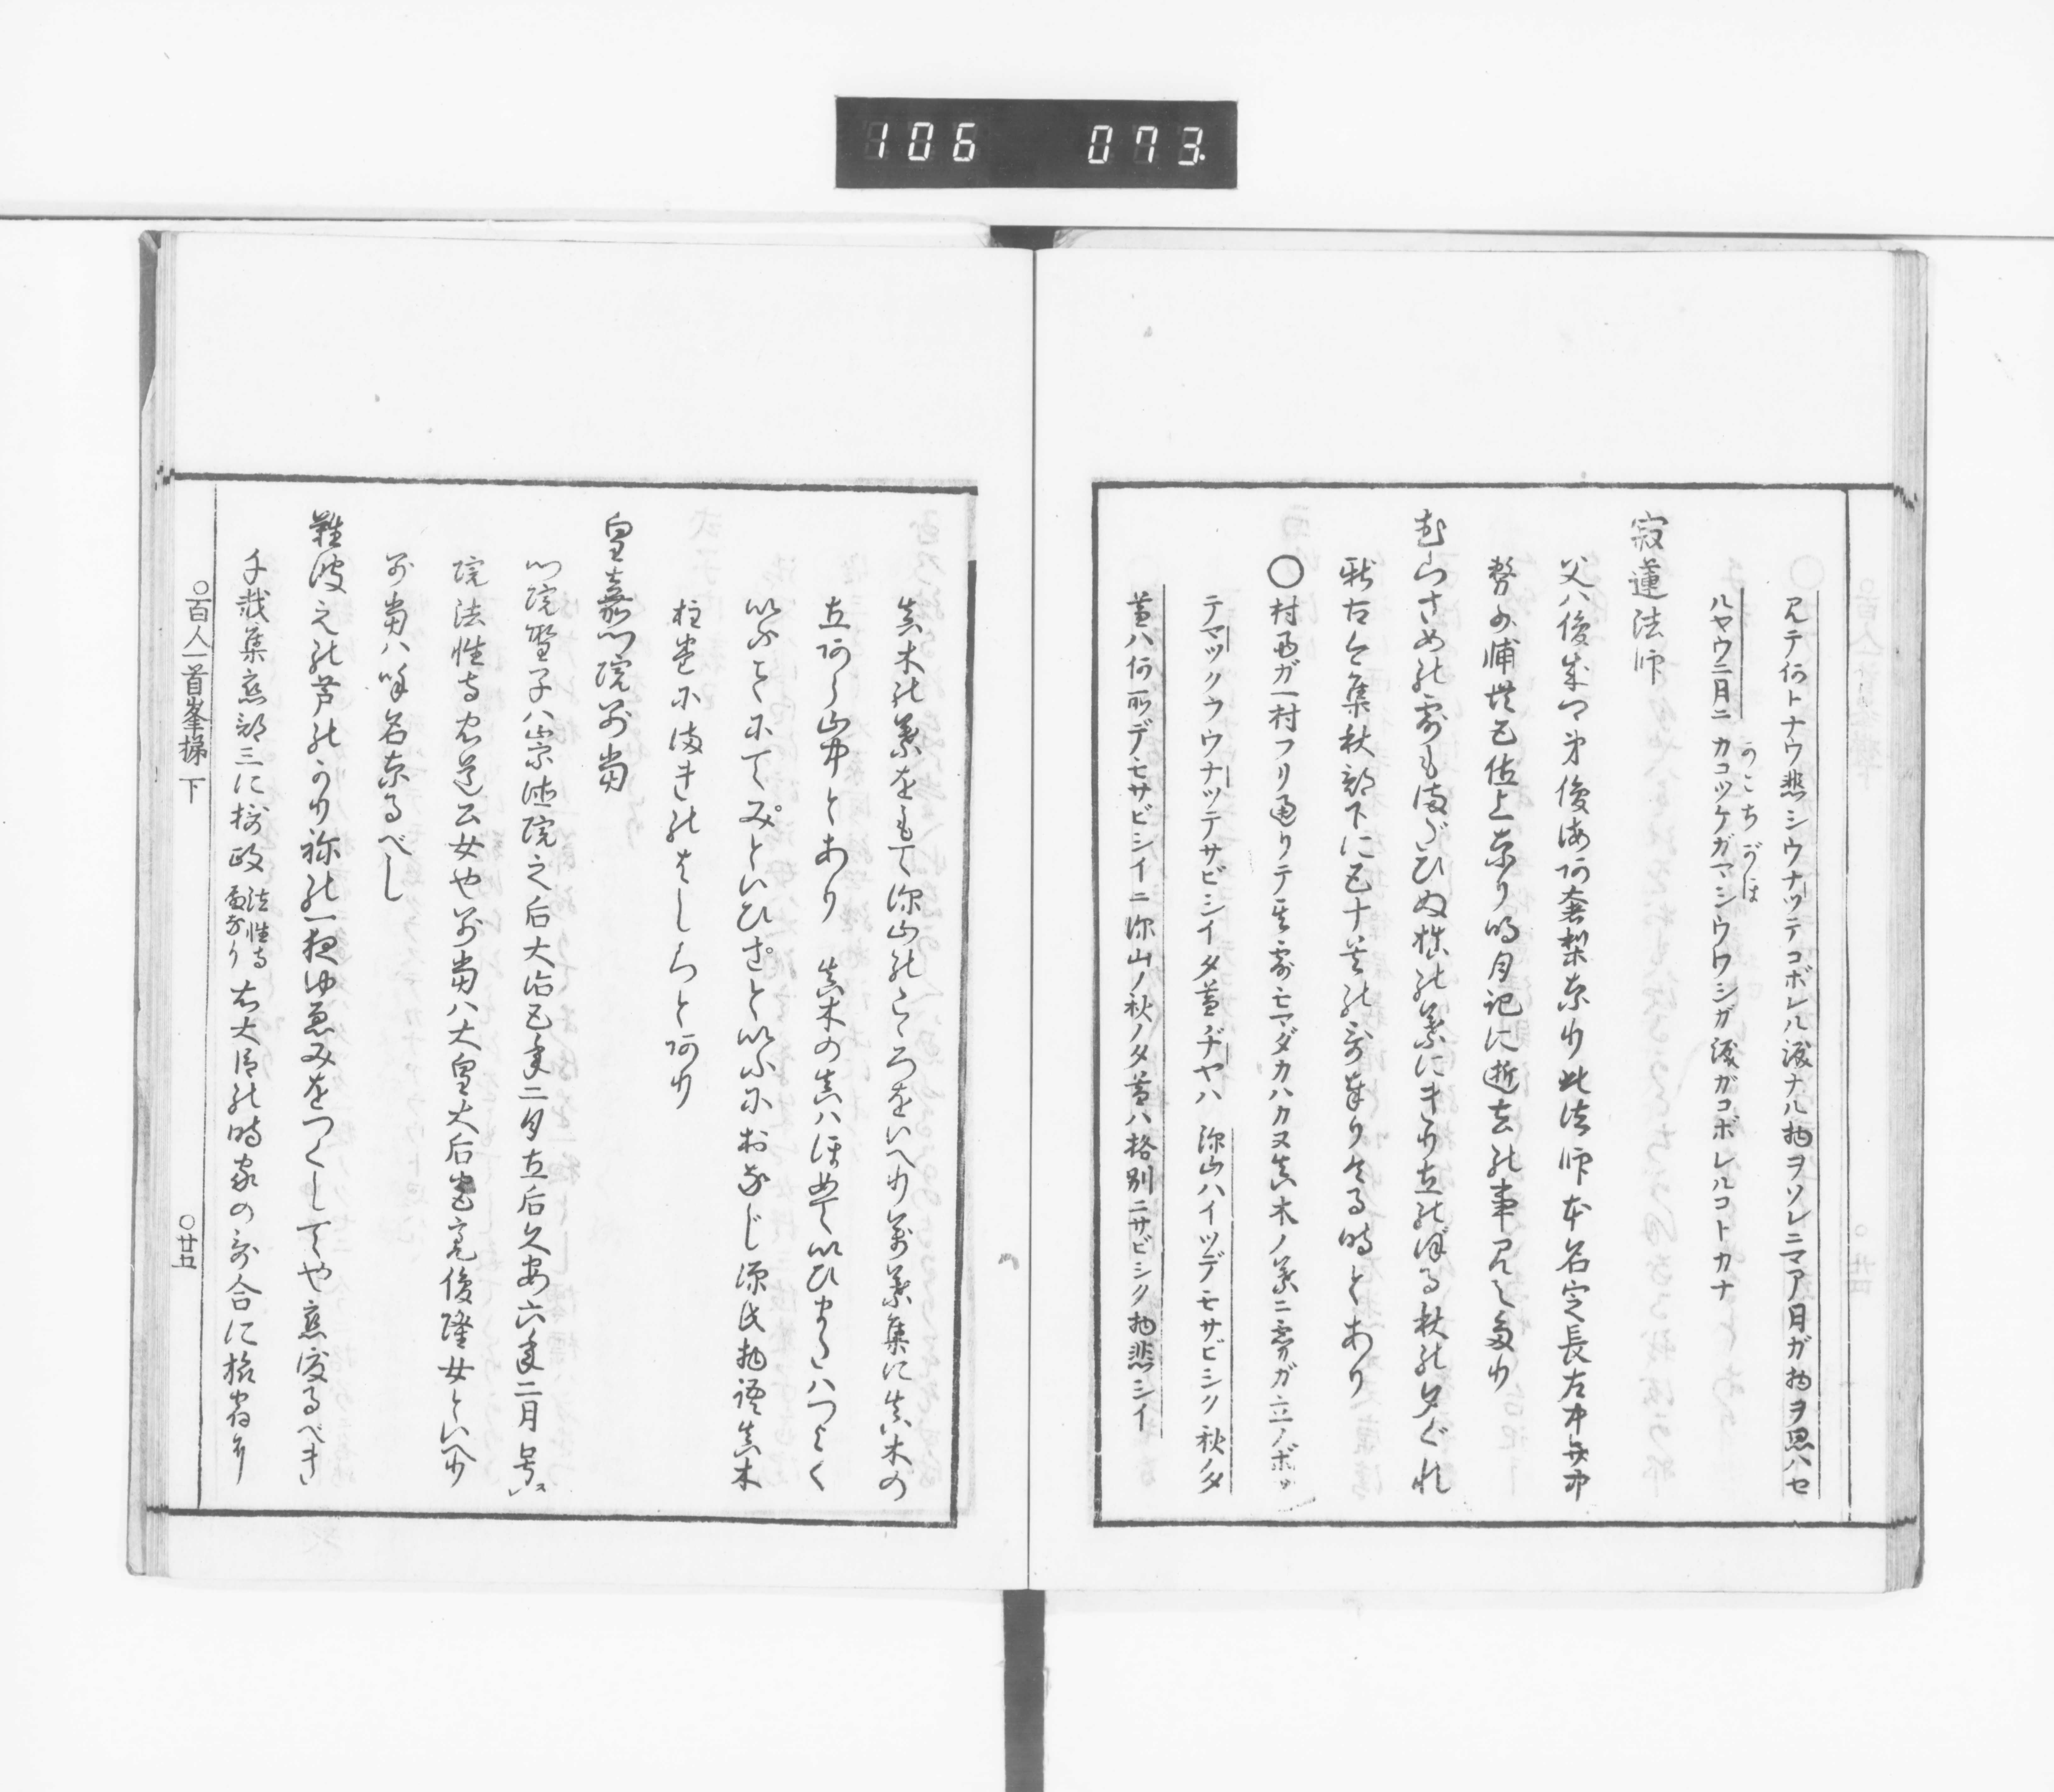 106 073
見テ何トナウ悲シウナツテコボレル涙ナル物ヲソレニマア月ガ物ヲ思ハセ
ルヤウニ月ニカコツケガマシウワシガ涙ガコボレルコトカナ
かこちがほ
寂蓮法師
父ハ俊成卿弟俊海阿奢梨なり此法師本名定長左中弁中
務少輔従五位上なり明月記に逝去の事見えたり
むらさめの露もまだひぬ槙の葉にきり立のぼる秋の夕ぐれ
新古今集秋部下に五十首の哥奉りける時とあり
○村雨ガ一村フリ通リテ其露モマダカハカヌ真木ノ葉ニ霧ガ立ノボッ
テマックウウナツテサビシイ夕暮ヂヤハ 深山ハイツデモサビシク秋ノ夕
暮ハ何所デモサビシイニ深山ノ秋ノ夕暮ハ格別ニサビシク物悲シイ
真木の葉をもて深山のこゝろをいへり萬葉集に真木の
立阿ら山中とあり 真木の真ハほめて以ひまきハつよく
以ふことにてみといひさと以ふにおなじ源氏物語真木
柱巻にまきのはしらと阿り
皇嘉門院別當
門院聖子ハ崇徳院之后大治五年二月立后久安六年二月号ス
院法性寺忠通公女也別當ハ大皇大后宮亮俊隆女といへり
別當ハ呼名なるべし
難波えの芦のかり祢の一夜ゆゑみをつくしてや恋渡るべき
千載集恋部三に摂政法性寺殿なり右大臣の時家の哥合に旅宿
○百人一首峯梯 下 ○廿五